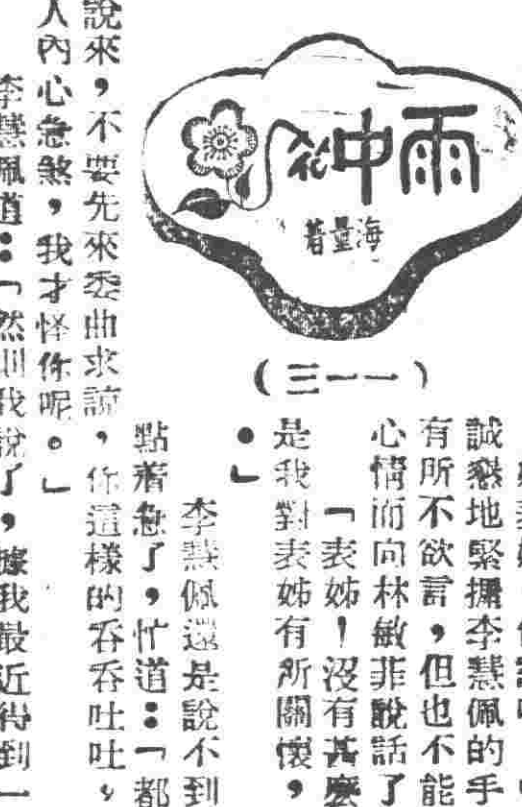 雨中花
海量著
（一一三）
誠懇地緊握李慧佩的手
有所不欲言，但也不能
心情而向林敏非說話了
「表姊！沒有甚麼
是我對表姊有所關懷，
。」
李慧佩還是說不到
點着急了，忙道：「都
說來，不要先來委曲求諒，你這樣的吞吞吐吐，
人內心急煞，我才怪你呢。」
李慧佩道：「然則我說了，據我最近得到一